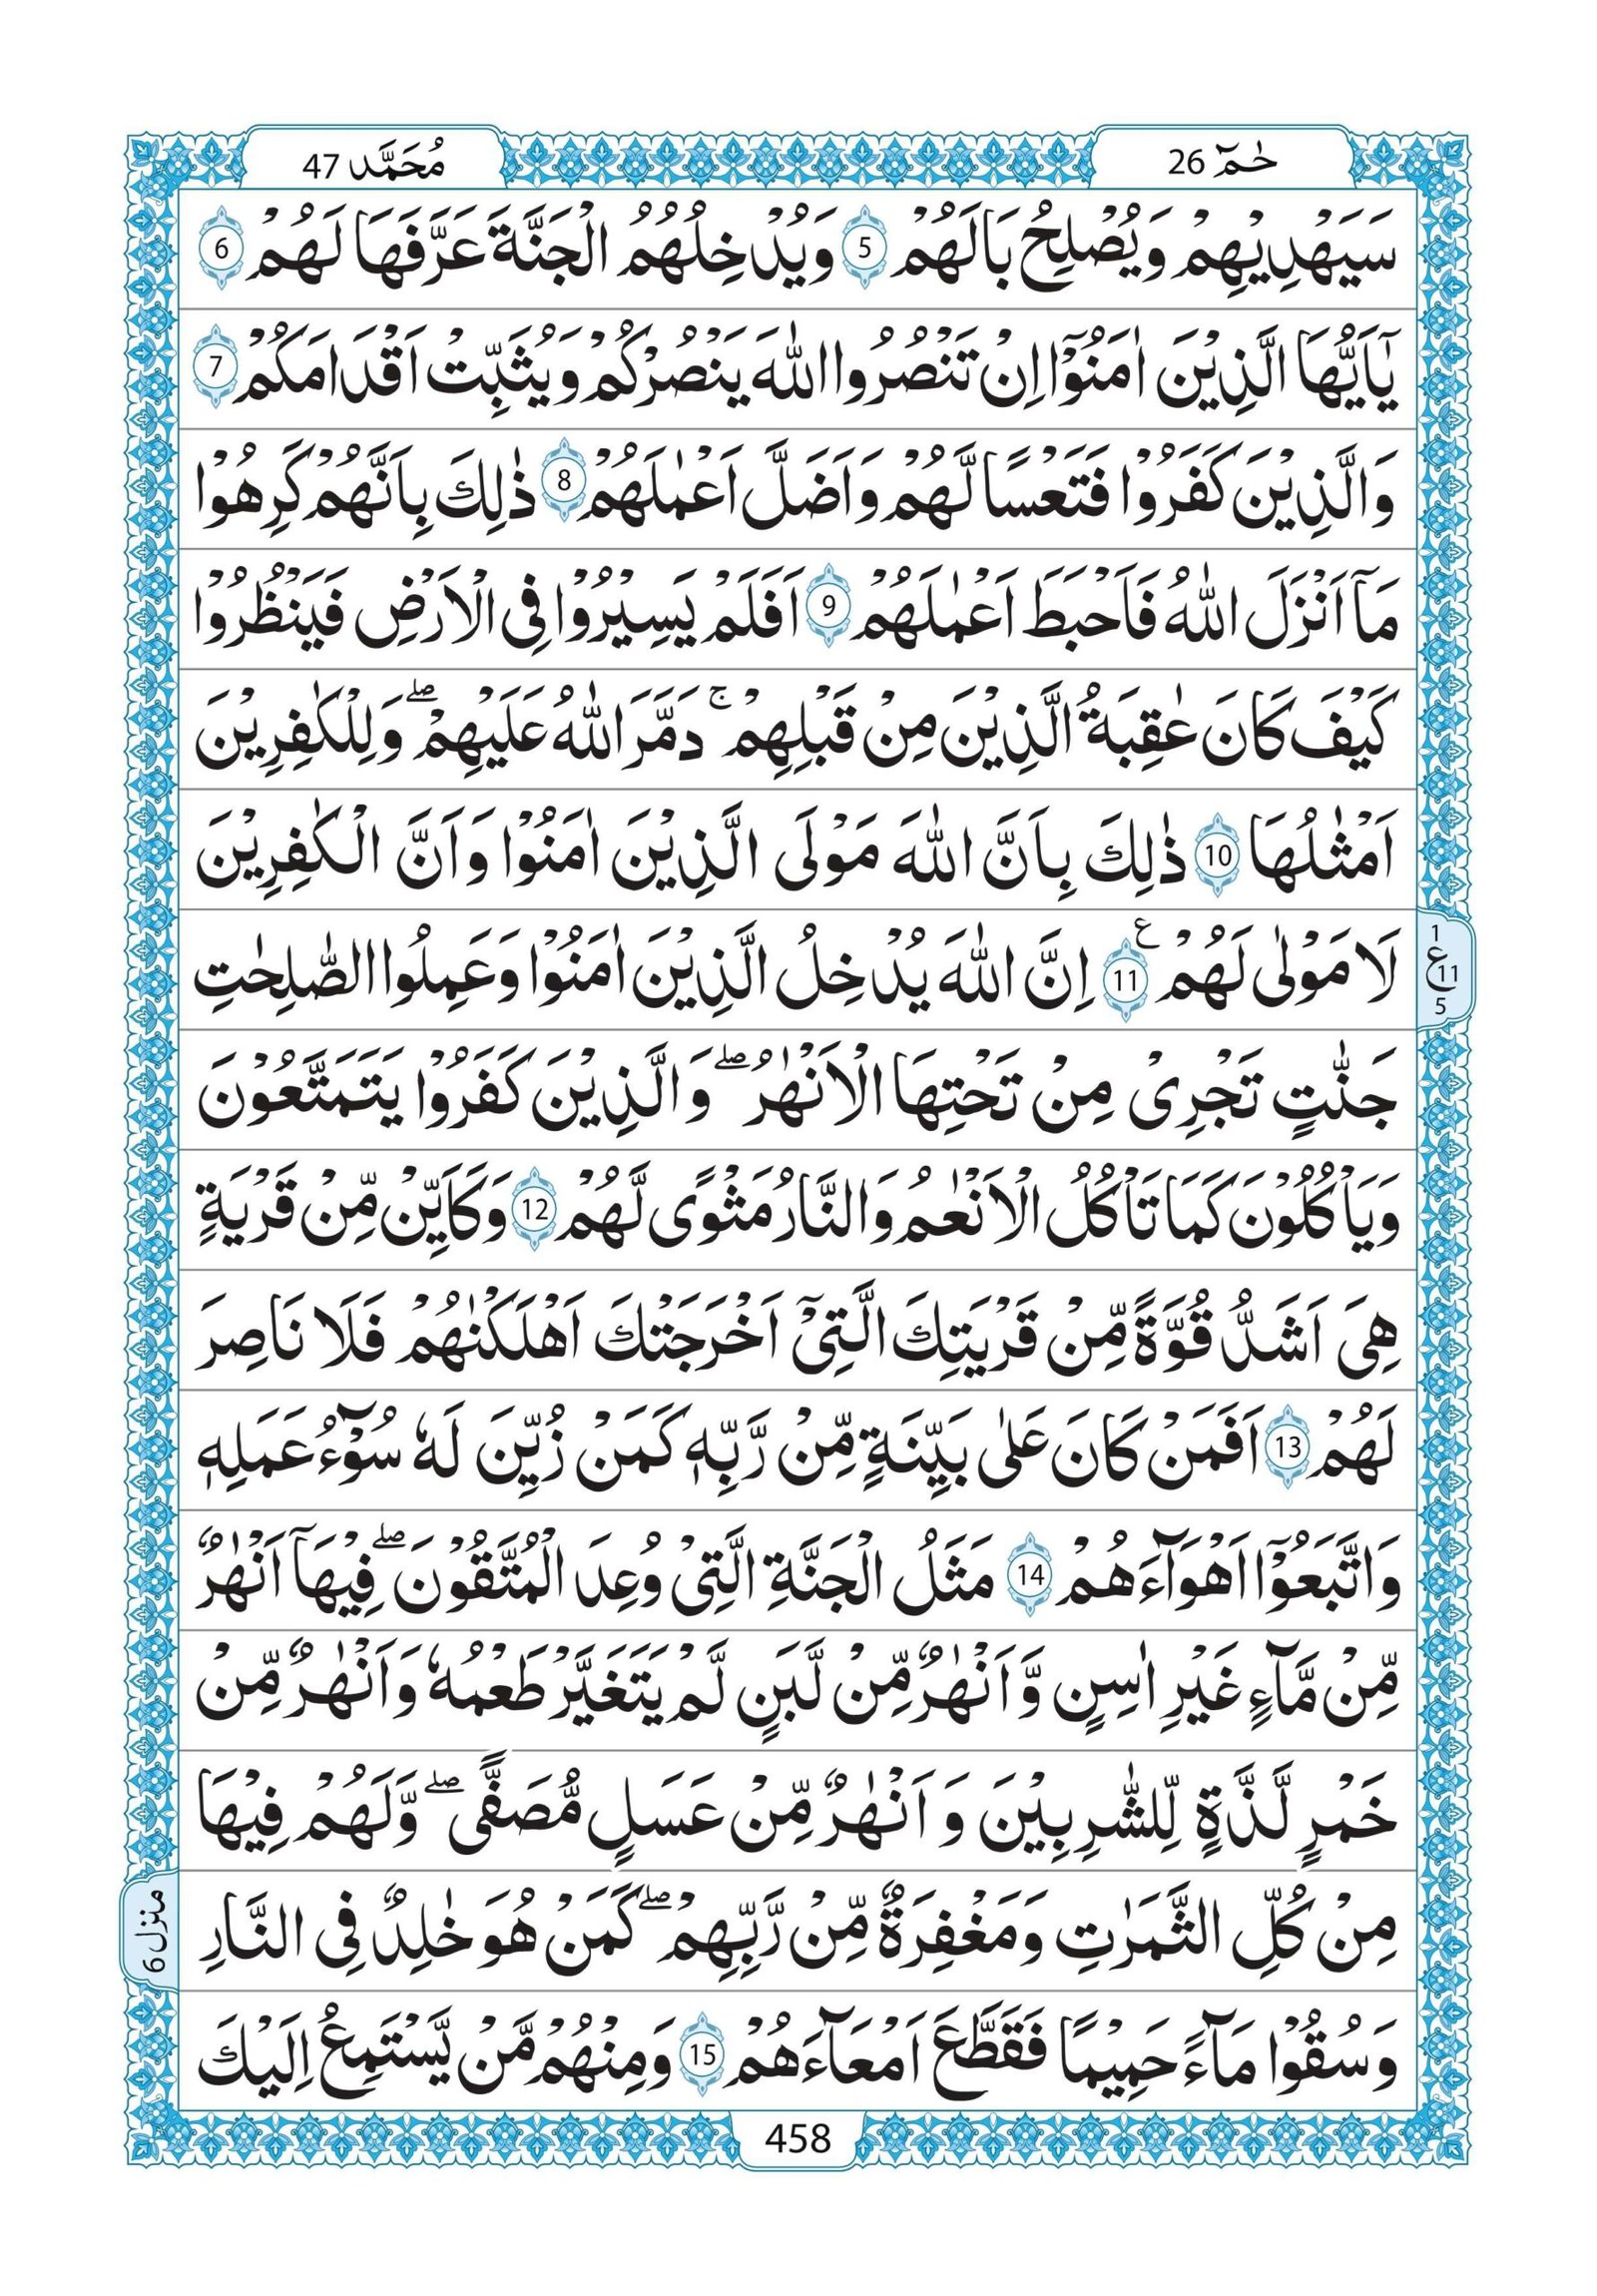 حٰمٓ 26
مُحَمَّد 47
سَيَهْدِيْهِمْ وَيُصْلِحُ بَالَهُمْ 5 وَيُدْخِلُهُمُ الْجَنَّةَ عَرَّفَهَا لَهُمْ 6
يٰٓاَيُّهَا الَّذِيْنَ اٰمَنُوْٓا اِنْ تَنْصُرُوا اللّٰهَ يَنْصُرْكُمْ وَيُثَبِّتْ اَقْدَامَكُمْ 7
وَالَّذِيْنَ كَفَرُوْا فَتَعْسًا لَّهُمْ وَاَضَلَّ اَعْمٰلَهُمْ 8 ذٰلِكَ بِاَنَّهُمْ كَرِهُوْا
مَآ اَنْزَلَ اللّٰهُ فَاَحْبَطَ اَعْمٰلَهُمْ 9 اَفَلَمْ يَسِيْرُوْا فِى الْاَرْضِ فَيَنْظُرُوْا
كَيْفَ كَانَ عٰقِبَةُ الَّذِيْنَ مِنْ قَبْلِهِمْ ۚ دَمَّرَ اللّٰهُ عَلَيْهِمْ ۖ وَلِلْكٰفِرِيْنَ
اَمْثٰلُهَا 10 ذٰلِكَ بِاَنَّ اللّٰهَ مَوْلَى الَّذِيْنَ اٰمَنُوْا وَاَنَّ الْكٰفِرِيْنَ
لَا مَوْلٰى لَهُمْ 11 ع اِنَّ اللّٰهَ يُدْخِلُ الَّذِيْنَ اٰمَنُوْا وَعَمِلُوا الصّٰلِحٰتِ
1
ع 11
5
جَنّٰتٍ تَجْرِىْ مِنْ تَحْتِهَا الْاَنْهٰرُ ۖ وَالَّذِيْنَ كَفَرُوْا يَتَمَتَّعُوْنَ
وَيَاْكُلُوْنَ كَمَا تَاْكُلُ الْاَنْعٰمُ وَالنَّارُ مَثْوًى لَّهُمْ 12 وَكَاَيِّنْ مِّنْ قَرْيَةٍ
هِىَ اَشَدُّ قُوَّةً مِّنْ قَرْيَتِكَ الَّتِىْٓ اَخْرَجَتْكَ اَهْلَكْنٰهُمْ فَلَا نَاصِرَ
لَهُمْ 13 اَفَمَنْ كَانَ عَلٰى بَيِّنَةٍ مِّنْ رَّبِّهٖ كَمَنْ زُيِّنَ لَهٗ سُوْٓءُ عَمَلِهٖ
وَاتَّبَعُوْٓا اَهْوَآءَهُمْ 14 مَثَلُ الْجَنَّةِ الَّتِىْ وُعِدَ الْمُتَّقُوْنَ ۖ فِيْهَآ اَنْهٰرٌ
مِّنْ مَّآءٍ غَيْرِ اٰسِنٍ وَّاَنْهٰرٌ مِّنْ لَّبَنٍ لَّمْ يَتَغَيَّرْ طَعْمُهٗ وَاَنْهٰرٌ مِّنْ
خَمْرٍ لَّذَّةٍ لِّلشّٰرِبِيْنَ وَاَنْهٰرٌ مِّنْ عَسَلٍ مُّصَفًّى ۖ وَّلَهُمْ فِيْهَا
مِنْ كُلِّ الثَّمَرٰتِ وَمَغْفِرَةٌ مِّنْ رَّبِّهِمْ ۖ كَمَنْ هُوَ خٰلِدٌ فِى النَّارِ
منزل 6
وَسُقُوْا مَآءً حَمِيْمًا فَقَطَّعَ اَمْعَآءَهُمْ 15 وَمِنْهُمْ مَّنْ يَّسْتَمِعُ اِلَيْكَ
458